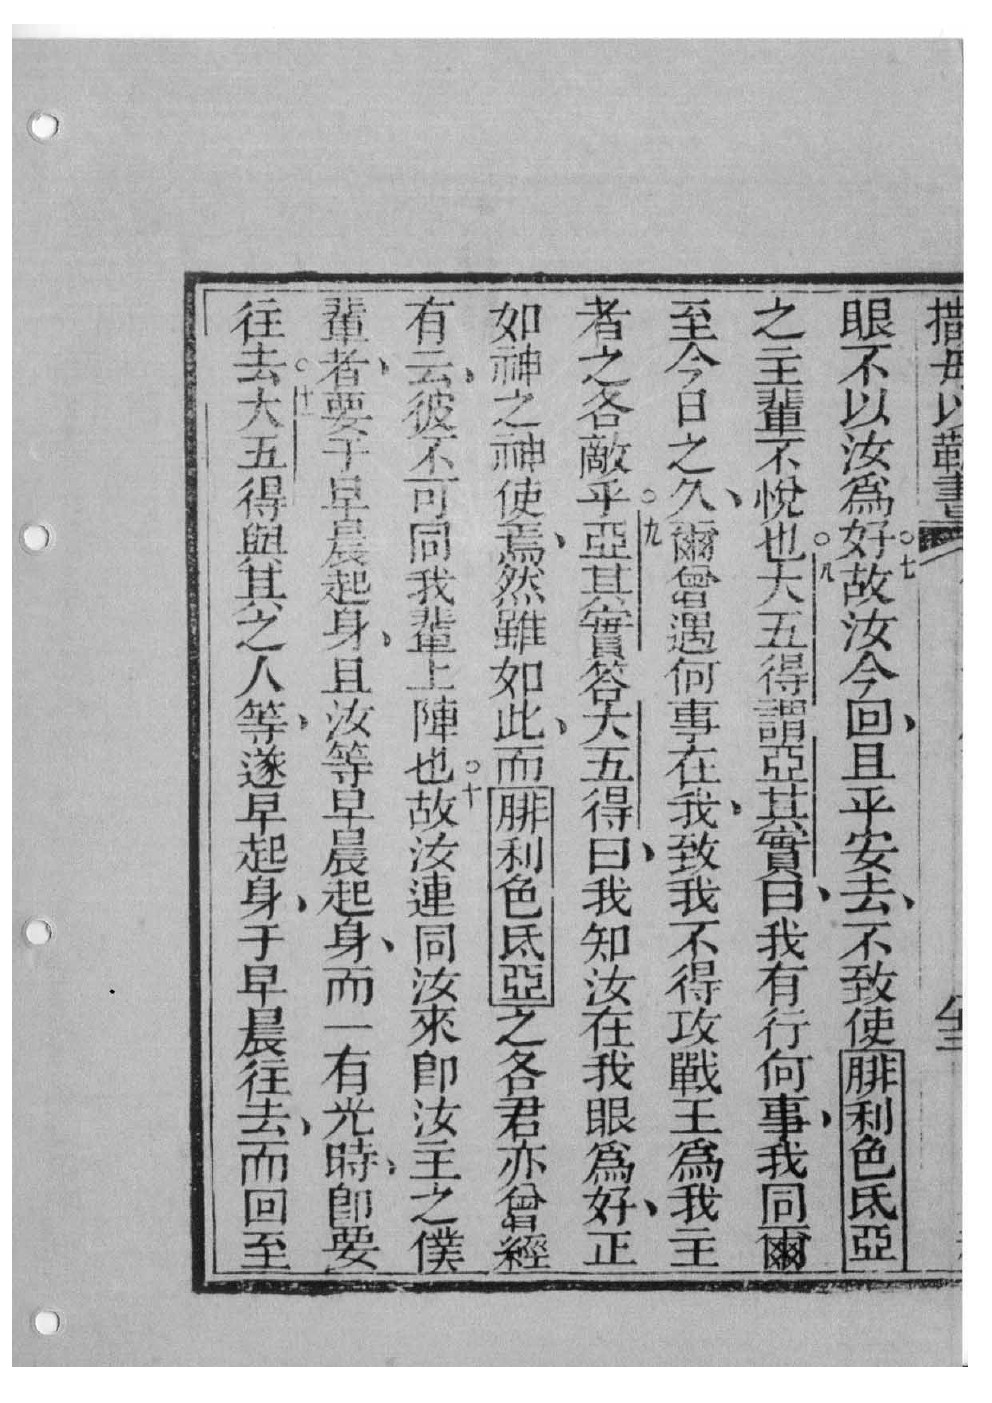 撒母以勒書
眼不以汝爲好○七故汝今回、且平安去、不致使腓利色氐亞
之主輩不悅也○八大五得謂亞其實曰、我有行何事、我同爾
至今日之久、爾曾遇何事在我、致我不得攻戰王爲我主
者之各敵乎○九亞其實答大五得曰、我知汝在我眼爲好、正
如神之神使焉、然雖如此、而腓利色氐亞之各君亦曾經
有云、彼不可同我輩上陣也○十故汝連同汝來卽汝主之僕
輩者、要于早晨起身、且汝等早晨起身、而一有光時、卽要
往去○十一大五得與其之人等、遂早起身、于早晨往去、而回至